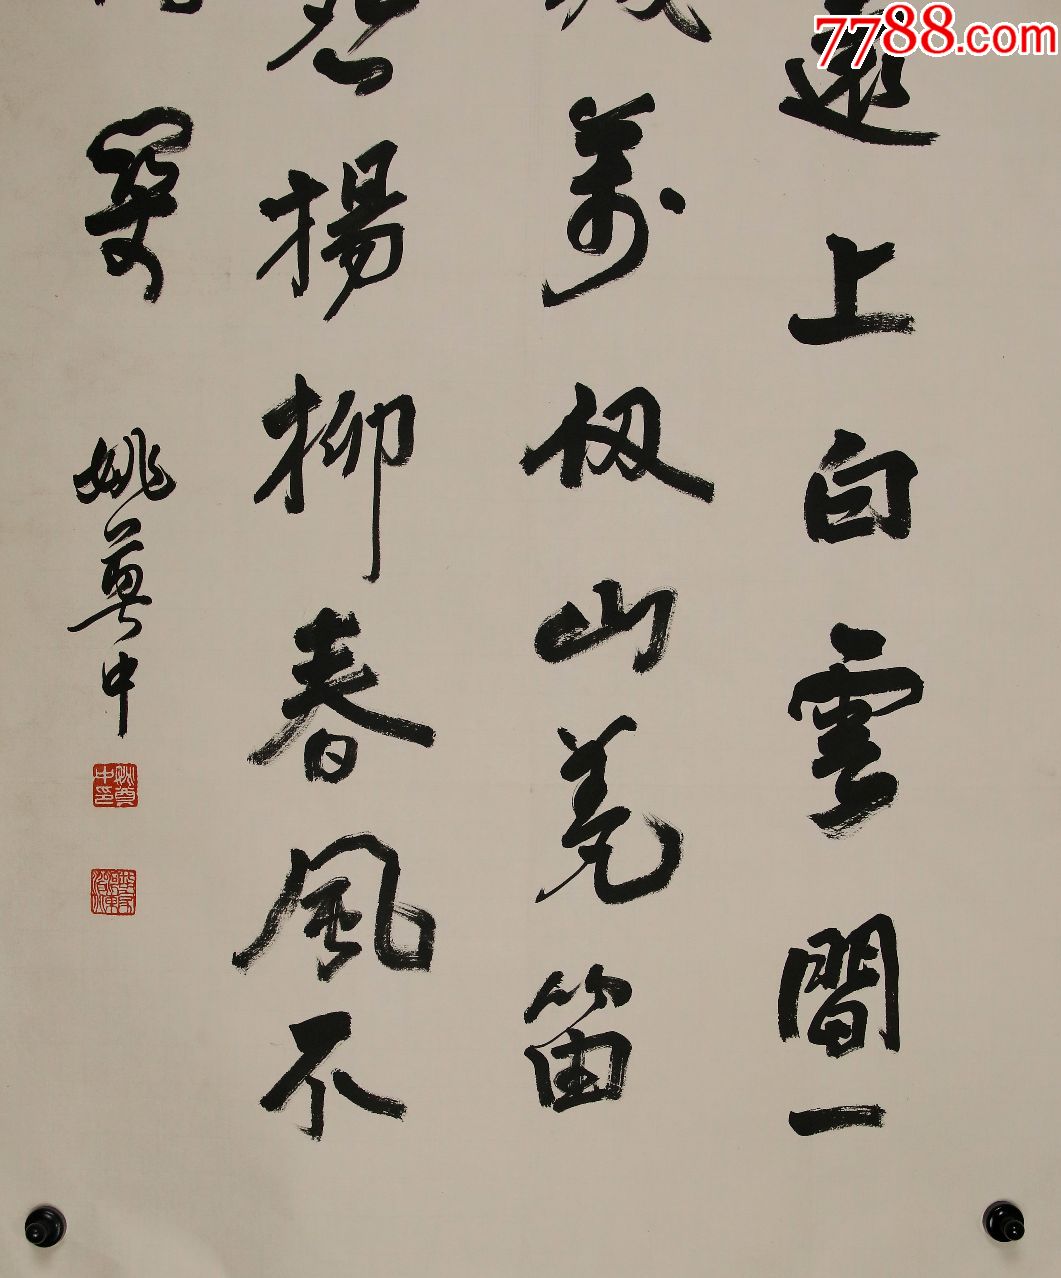 7788.com
遠上白雲間一
城萬仞山羌笛
怨楊柳春風不
關
姚奠中
姚奠中印